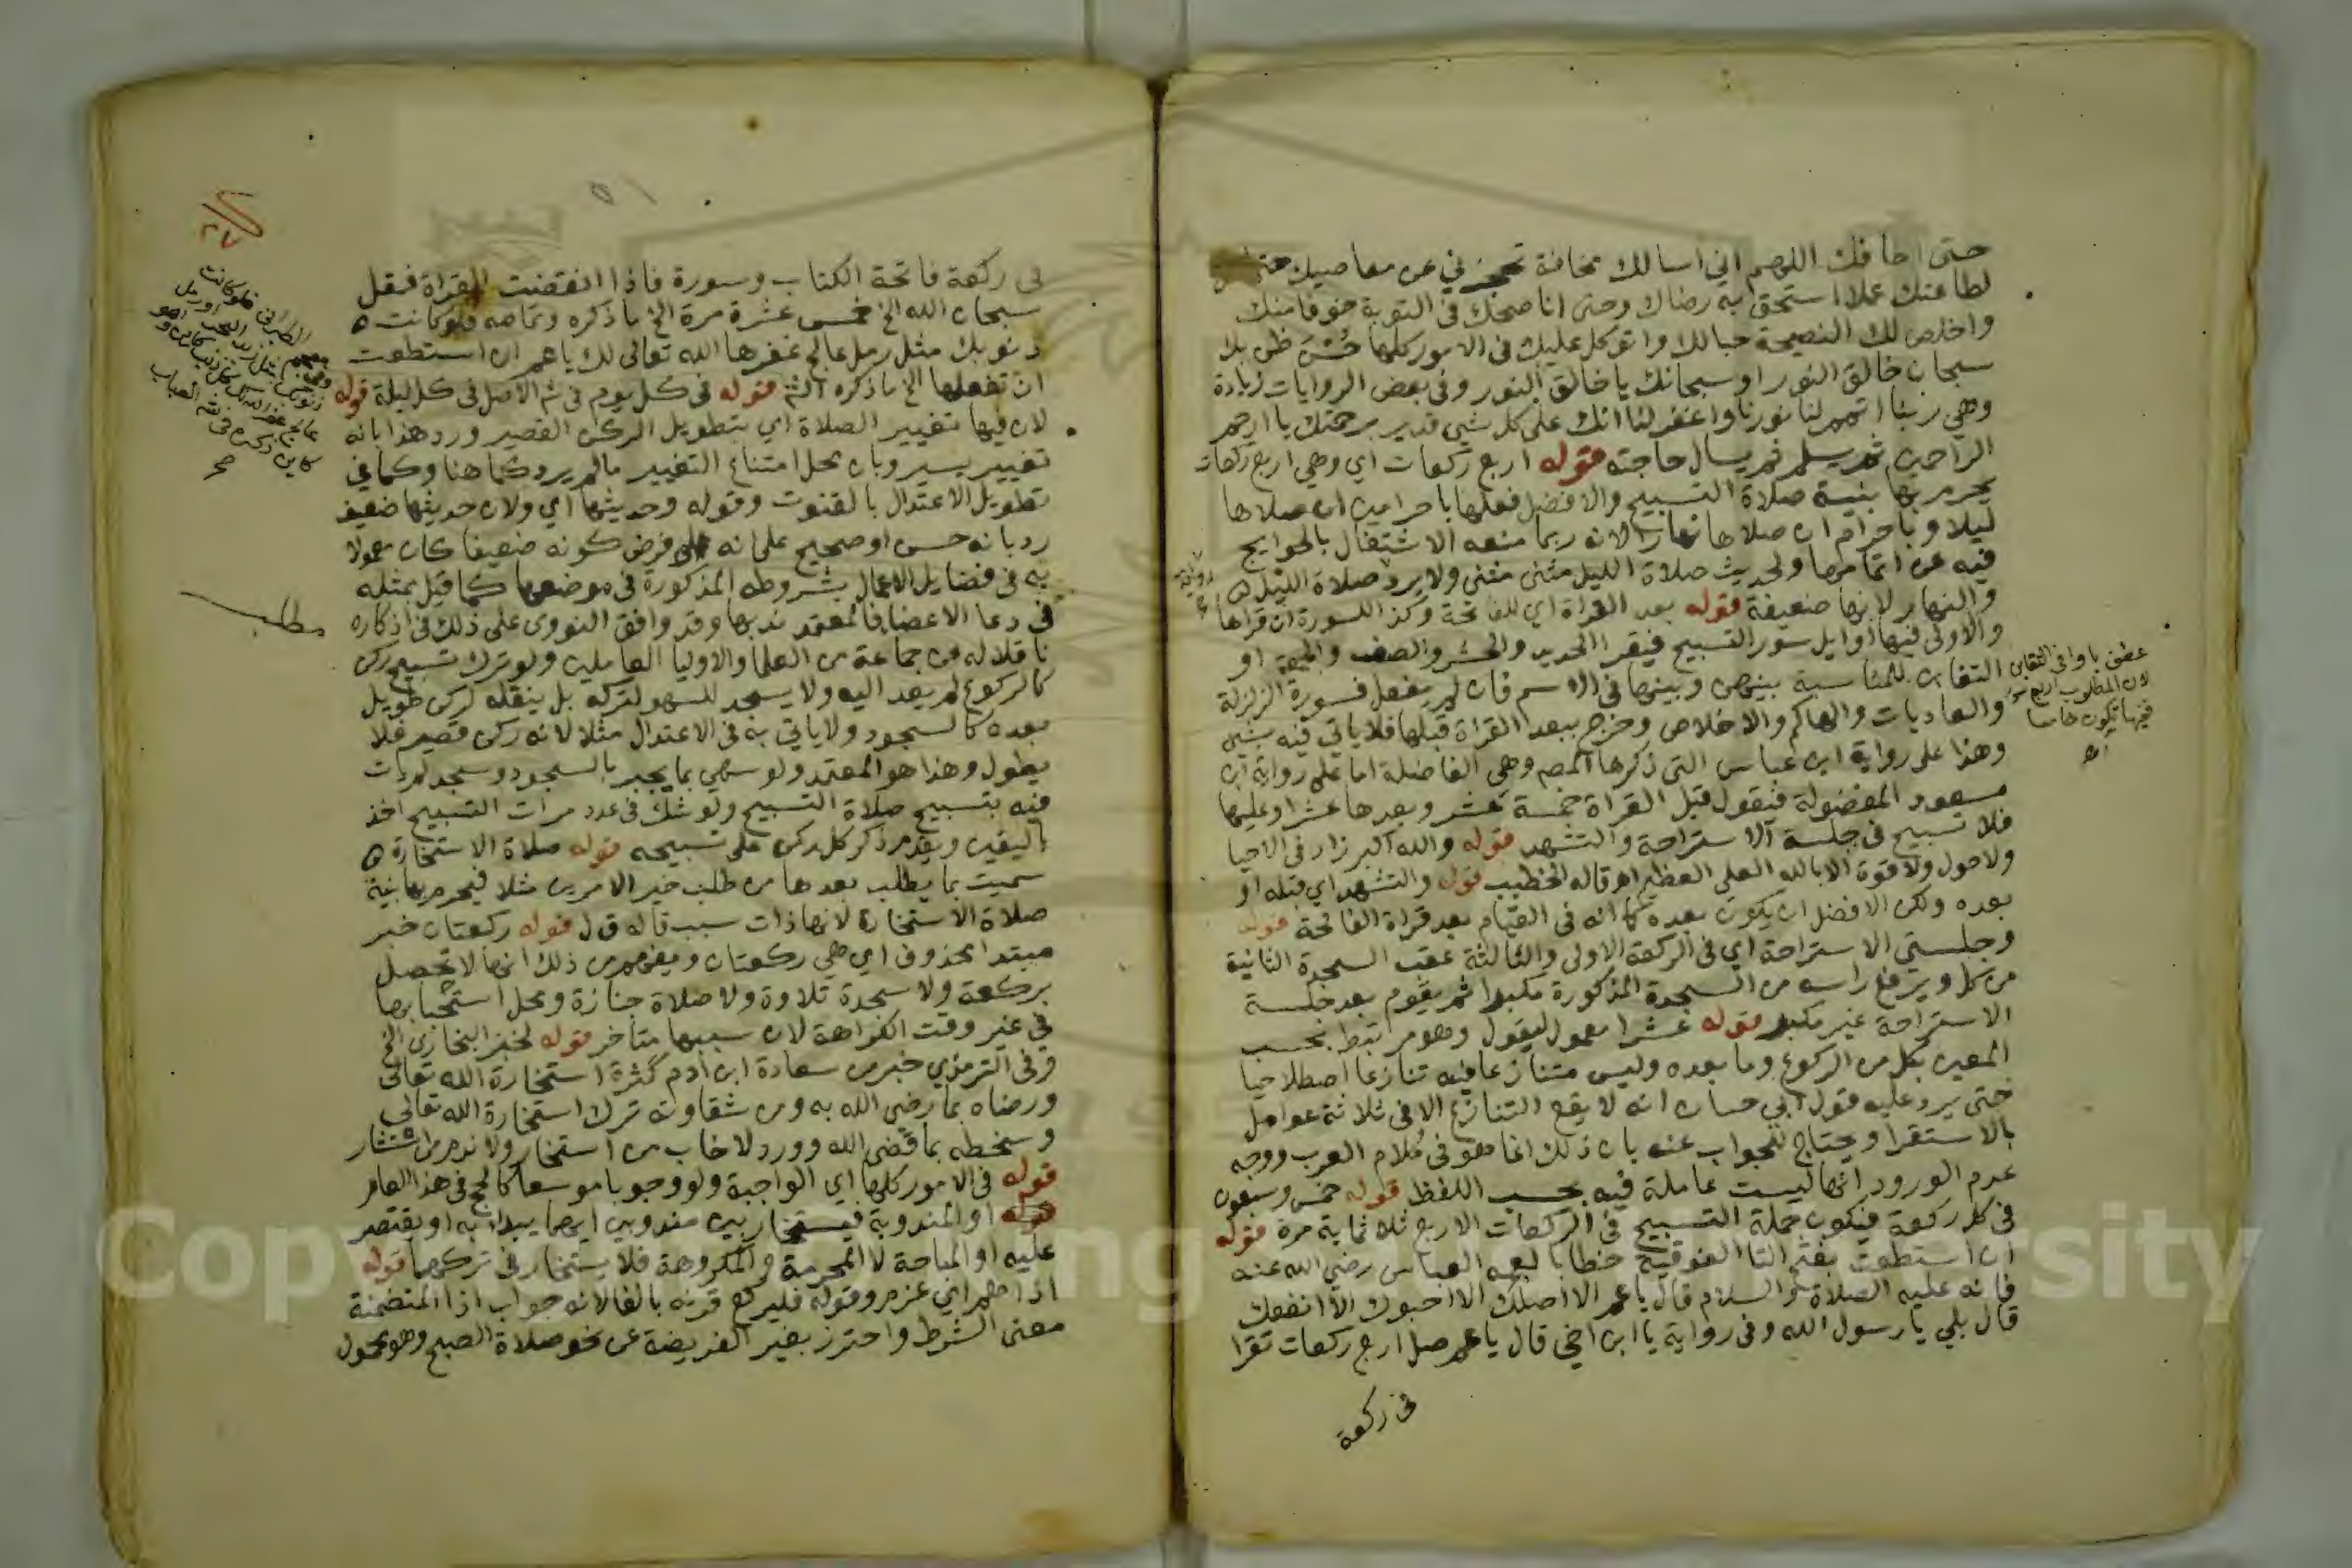 حتى اخافك اللهم اني اسالك مخافة تحجزني عن معاصيك حتى
لطاعتك عملا استحق به رضاك وحتى اناصحك في التوبة خوفا منك
واخلص لك النصيحة حبا لك واتوكل عليك في الامور كلها حُسْنَ ظن بك
سبحان خالق النور او سبحانك يا خالق النور وفي بعض الروايات زيادة
وهي ربنا اتمم لنا نورنا واغفر لنا انك على كل شي قدير برحمتك يا ارحم
الراحمين ثم يسلم ثم يسال حاجته قوله اربع ركعات اي وهي اربع ركعات
يحرم بها بنية صلاة التسبيح والافضل فعلها باحرامين ان صلاها
ليلا وباحرام ان صلاها نهارا لانه ربما منعه الاشتغال بالحوايج
فيه عن اتمامها ولحديث صلاة الليل مثنى مثنى ولا يرد صلاة الليل
والنهار لانها ضعيفة قوله بعد القراة اي للفاتحة وكذا السورة ان قراها
والاولى فيها اوايل سور التسبيح فيقرا الحديد والحشر والصف والجمعة او
التغابن للمناسبة بينهن وبينها في الاسم فان لم يفعل فسورة الزلزلة
والعاديات والهاكم والاخلاص وخرج ببعد القراة قبلها فلا ياتي فيه بشي
وهذا على رواية ابن عباس التي ذكرها المص وهي الفاضلة اما على رواية ابن
مسعود المفضولة فنقول قبل القراة خمسة عشر وبعدها عشرا وعليها
فلا تسبيح في جلسة الاستراحة والتشهد قوله والله اكبر زاد في الاحيا
ولا حول ولا قوة الا بالله العلي العظيم اه قاله الخطيب قوله والتشهد اي قبله او
بعده ولكن الافضل ان يكون بعده كما انه في القيام بعد قراة الفاتحة قوله
وجلستي الاستراحة اي في الركعة الاولى والثالثة عقب السجدة الثانية
من كل ويرفع راسه من السجدة المذكورة مكبرا ثم يقوم بعد جلسة
الاستراحة غير مكبر قوله عشرا معمول ليقول وهو مرتبط بحسب
المعين بكل من الركوع وما بعده وليس متنازعا فيه تنازعا اصطلاحيا
حتى يرد عليه قول ابي حسان انه لا يقع التنازع الا في ثلاثة عوامل
بالاستقرا ويحتاج للجواب عنه بان ذلك انما هو في كلام العرب ووجه
عدم الورود انها ليست عاملة فيه بحسب اللفظ قوله خمس وسبعون
في كل ركعة فيكون جملة التسبيح في الركعات الاربع ثلاثماية مرة قوله
ان استطعت بفتح التا الفوقية خطابا لعمه العباس رضي الله عنه
فانه عليه الصلاة والسلام قال يا عم الا اصلك الا احبوك الا انفعك
قال بلى يا رسول الله وفي رواية يا ابن اخي قال يا عم صل اربع ركعات تقرا
في ركعة
عطف باو في التغابن
لان المطلوب اربع
فيها تكون خامسا
اه
في ركعة فاتحة الكتاب وسورة فاذا انقضت القراة فقل
سبحان الله الخ خمس عشرة مرة الخ ما ذكره وتمامه فلو كانت
ذنوبك مثل رمل عالج غفرها الله تعالى لك يا عم ان استطعت
ان تفعلها الخ ما ذكره الشم قوله في كل يوم في ثم الاصل في كل ليلة قوله
لان فيها تغيير الصلاة اي بتطويل الركن القصير ورد هذا بانه
تغيير يسير وبان محل امتناع التغيير ما لم يرد كما هنا وكما في
تطويل الاعتدال بالقنوت وقوله وحديثها اي ولان حديثها ضعيف
رد بانه حسن او صحيح على انه على فرض كونه ضعيفا كان معمولا
به في فضايل الاعمال بشروطه المذكورة في موضعها كما قيل بمثله
في دعا الاعضا فالمعتمد ندبها وقد وافق النووى على ذلك في اذكاره
ناقلا له عن جماعة من العلما والاوليا العاملين ولو ترك تسبيح ركن
كالركوع لم يعد اليه ولا يسجد للسهو لتركه بل ينقله لركن طويل
بعده كالسجود ولا ياتي به في الاعتدال مثلا لانه ركن قصير فلا
يطول وهذا هو المعتمد ولو سهي بما يجبر بالسجود وسجد لم يات
فيه بتسبيح صلاة التسبيح ولو شك في عدد مرات التسبيح اخذ
باليقين ويقدم ذكر كل ركن على تسبيحه قوله صلاة الاستخارة
سميت بما يطلب بعدها من طلب خير الامرين مثلا فيحرم بها بنية
صلاة الاستخارة لانها ذات سبب قاله ق ل قوله ركعتان خبر
مبتدا محذوف اي هي ركعتان ويفهم من ذلك انها لا تحصل
بركعة ولا سجدة تلاوة ولا صلاة جنازة ومحل استحبابها
في غير وقت الكراهة لان سببها متاخر قوله لخبر البخاري الخ
وفي الترمذي خبر من سعادة ابن ادم كثرة استخارة الله تعالى
ورضاه بما رضي الله به ومن شقاوته ترك استخارة الله تعالى
وسخطه بما قضى الله وورد لا خاب من استخار ولا ندم من استشار
قوله في الامور كلها اي الواجبة ولو وجوبا موسعا كالحج في هذا العام
قوله او المندوبة فيستخار بين مندوبين ايهما يبدا به او يقتصر
عليه او المباحة لا المحرمة والمكروهة فلا يستخار في تركهما قوله
اذا هم اي عزم وقوله فليركع قرنه بالفا لانه جواب اذا المتضمنة
معنى الشرط واحترز بغير الفريضة عن نحو صلاة الصبح وهو محمول
مطلب
Copy ng ersity